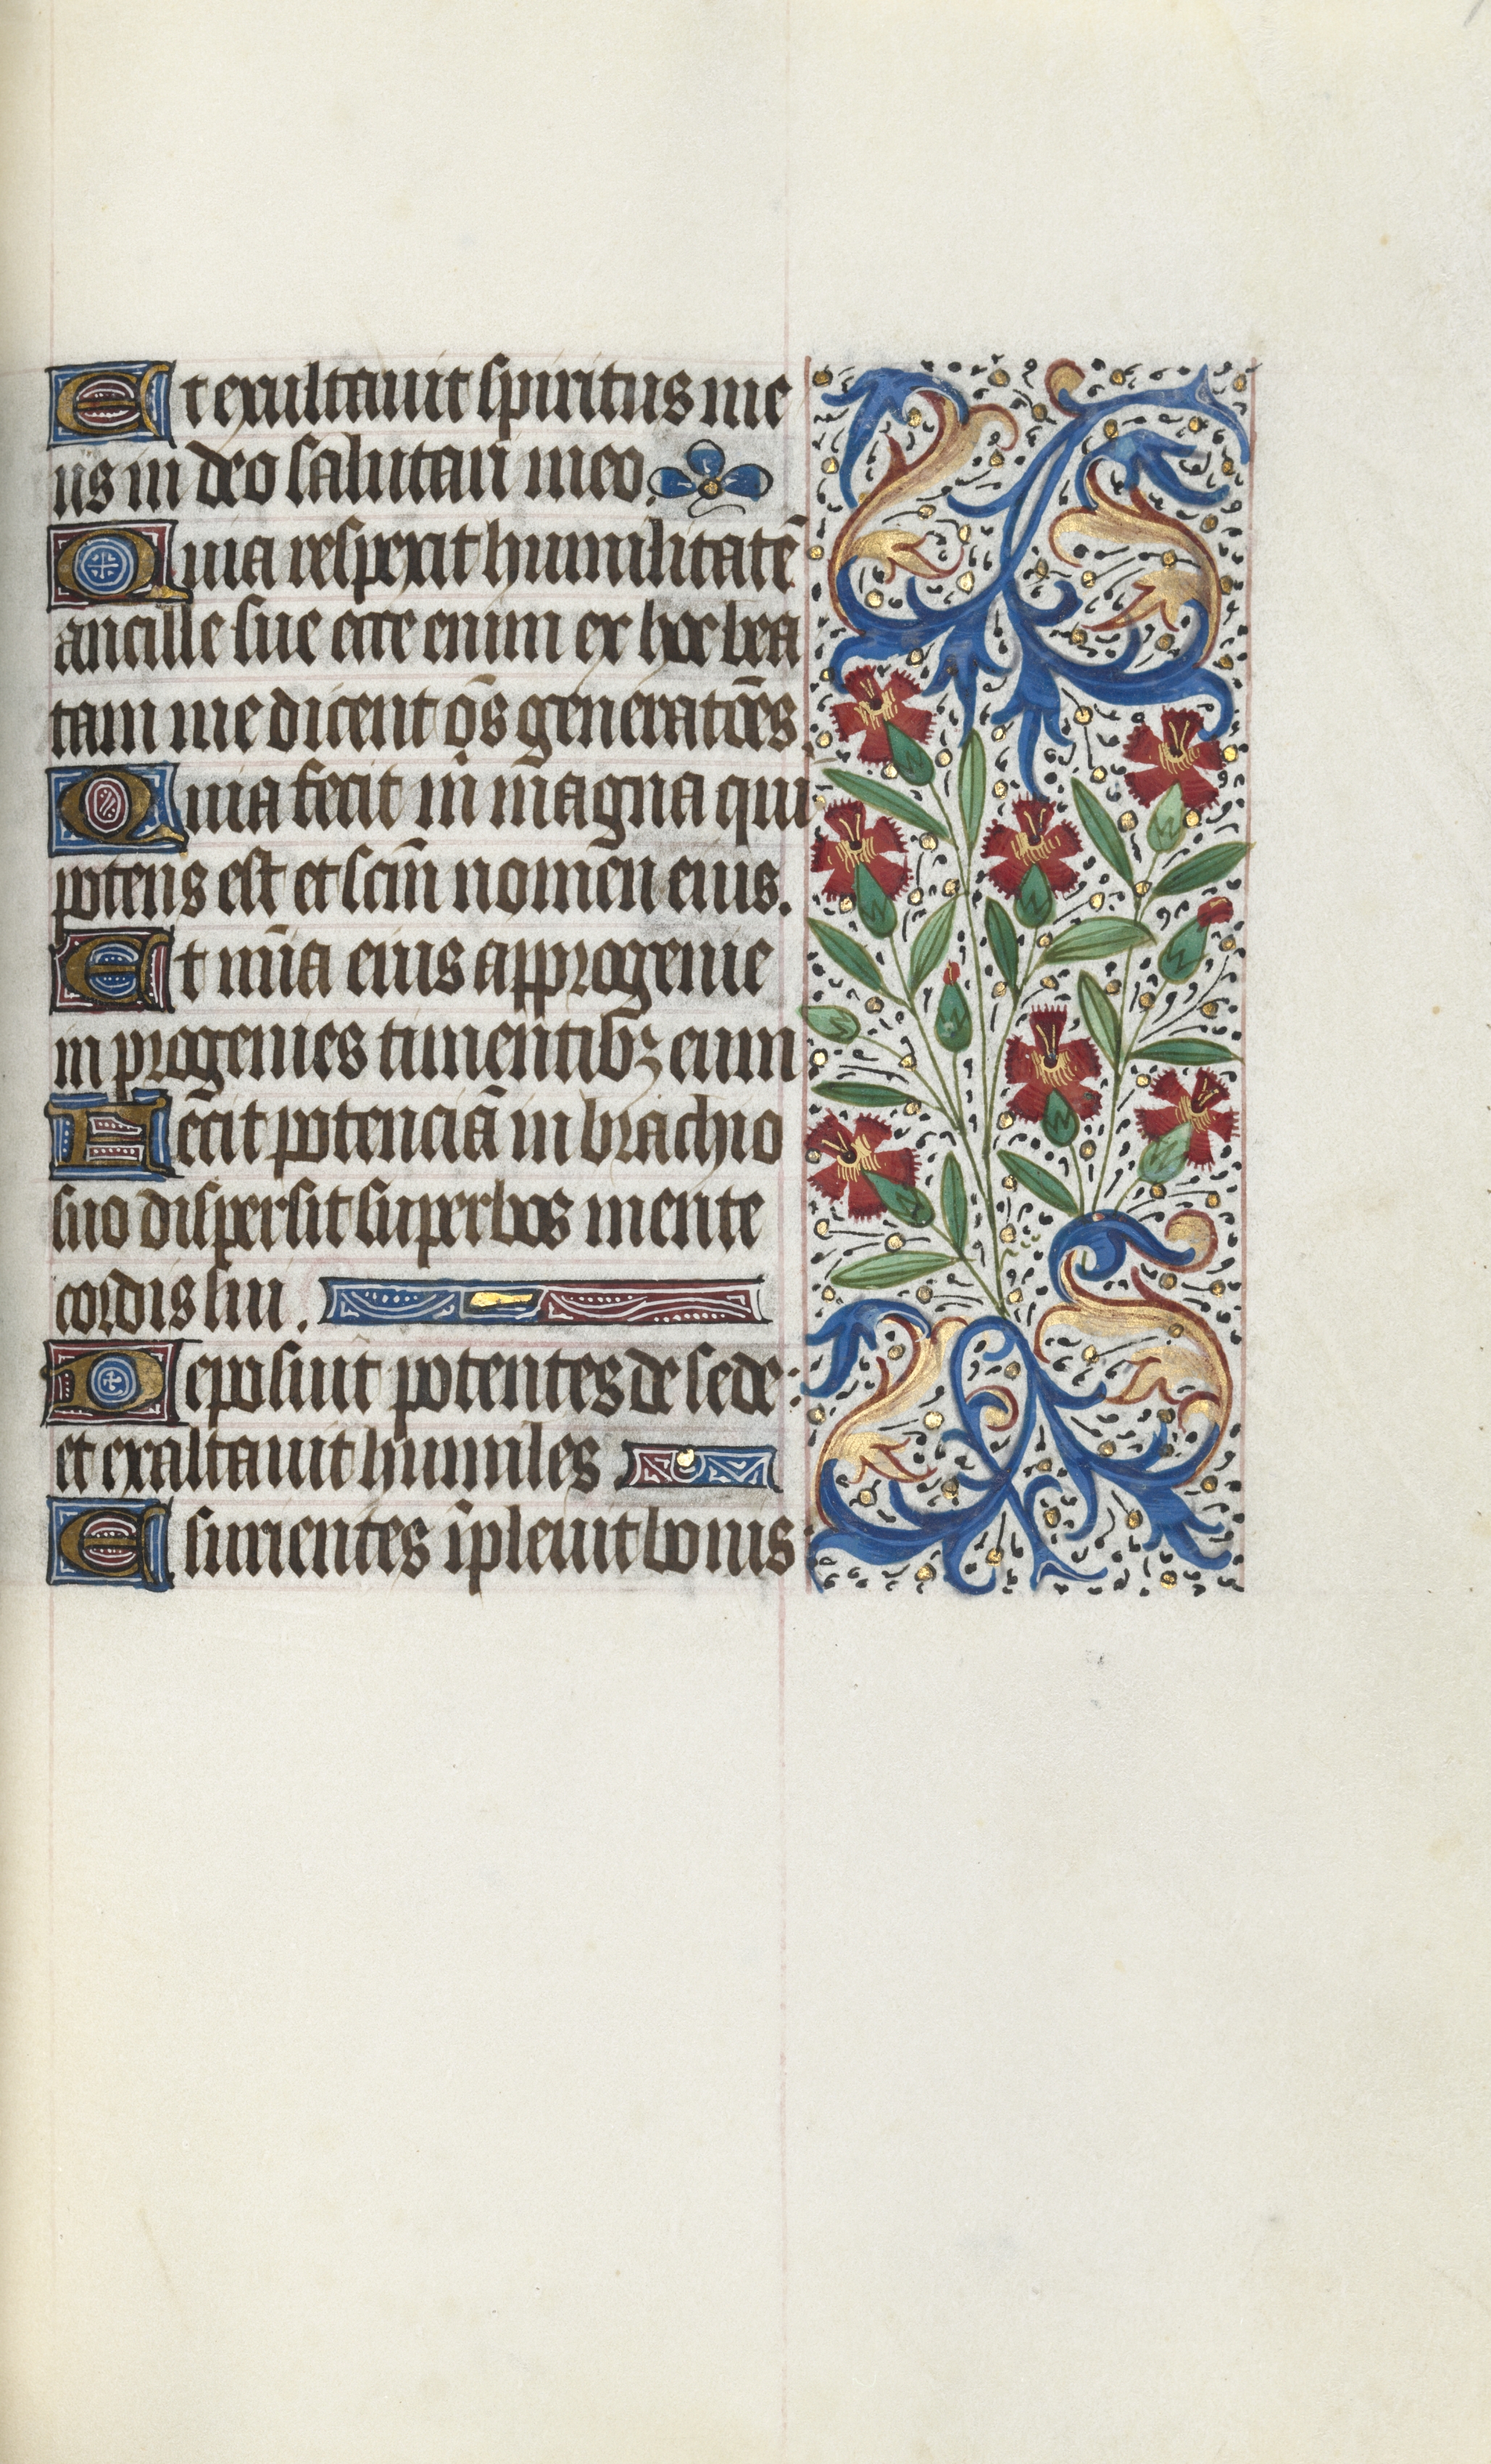 Et exultauit spiritus me
us in deo salutari meo.
Quia respexit humilitatē
ancille sue ecce enim ex hoc bea
tam me dicent oḿs generatōes.
Quia fecit m̄ magna qui
potens est et scm̄ nomen eius.
Et mīa eius a progenie
in progenies timentibꝫ eum
Fecit potenciā in brachio
suo dispersit superbos mente
cordis sui.
Deposuit potentes de sede:
et exaltauit humiles.
Esurientes īpleuit bonis: